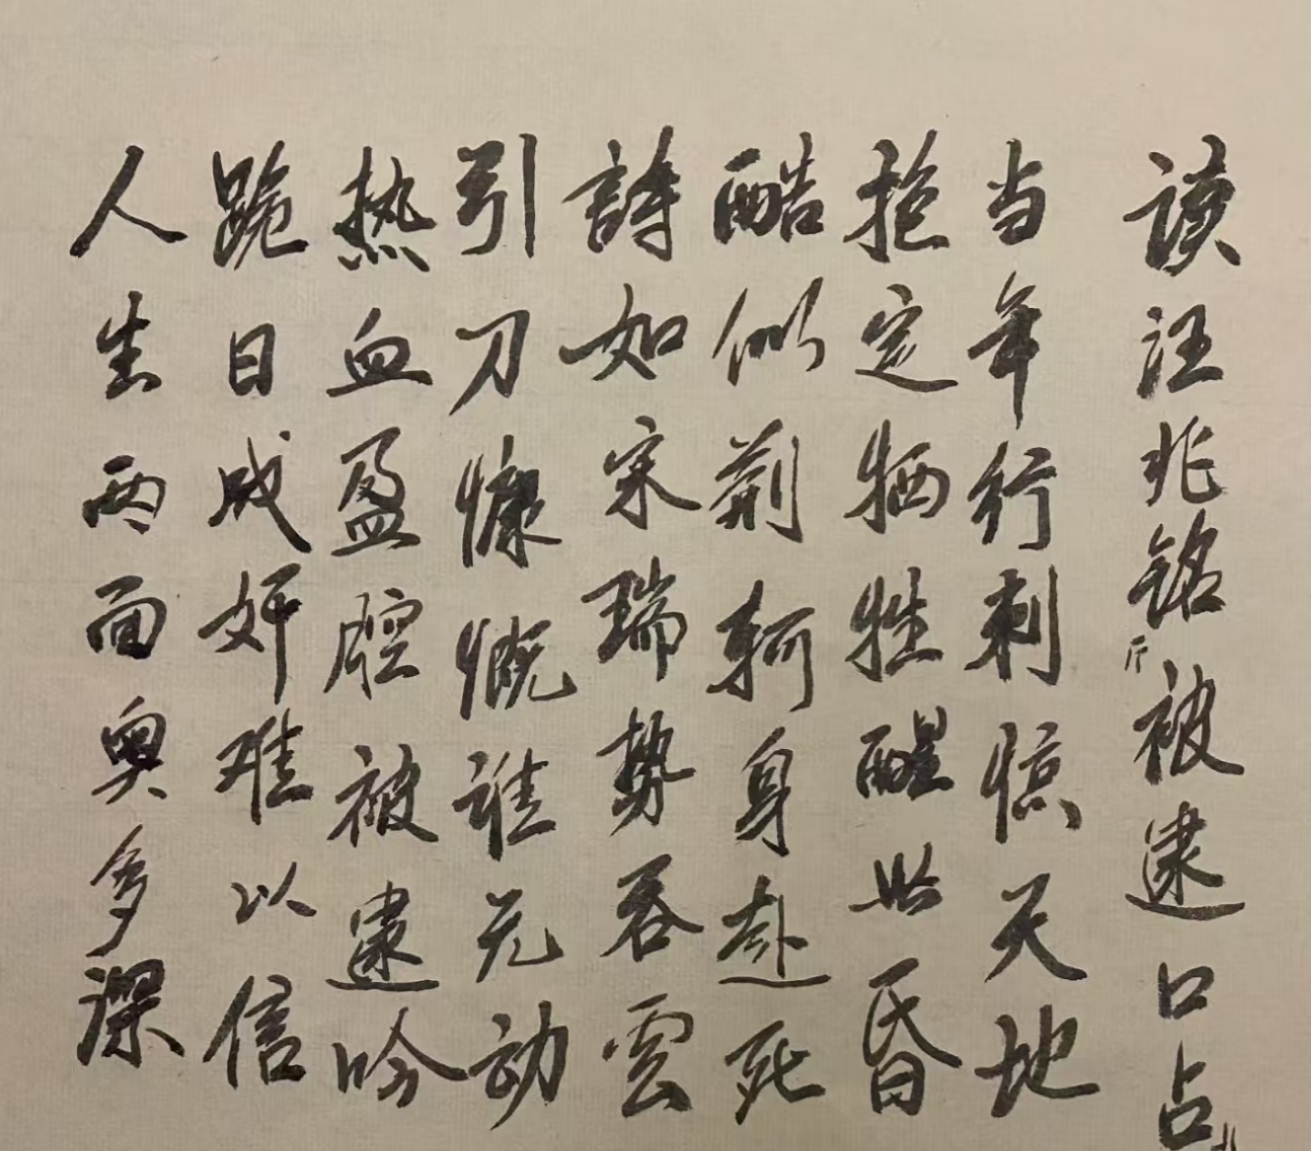 读汪兆铭被逮口占
当年行刺惊天地
抱定牺牲醒世昏
酷似荆轲身赴死
詩如宋瑞势吞雲
引刀慷慨谁无动
热血盈腔被逮吟
跪日成奸难以信
人生两面奥多深